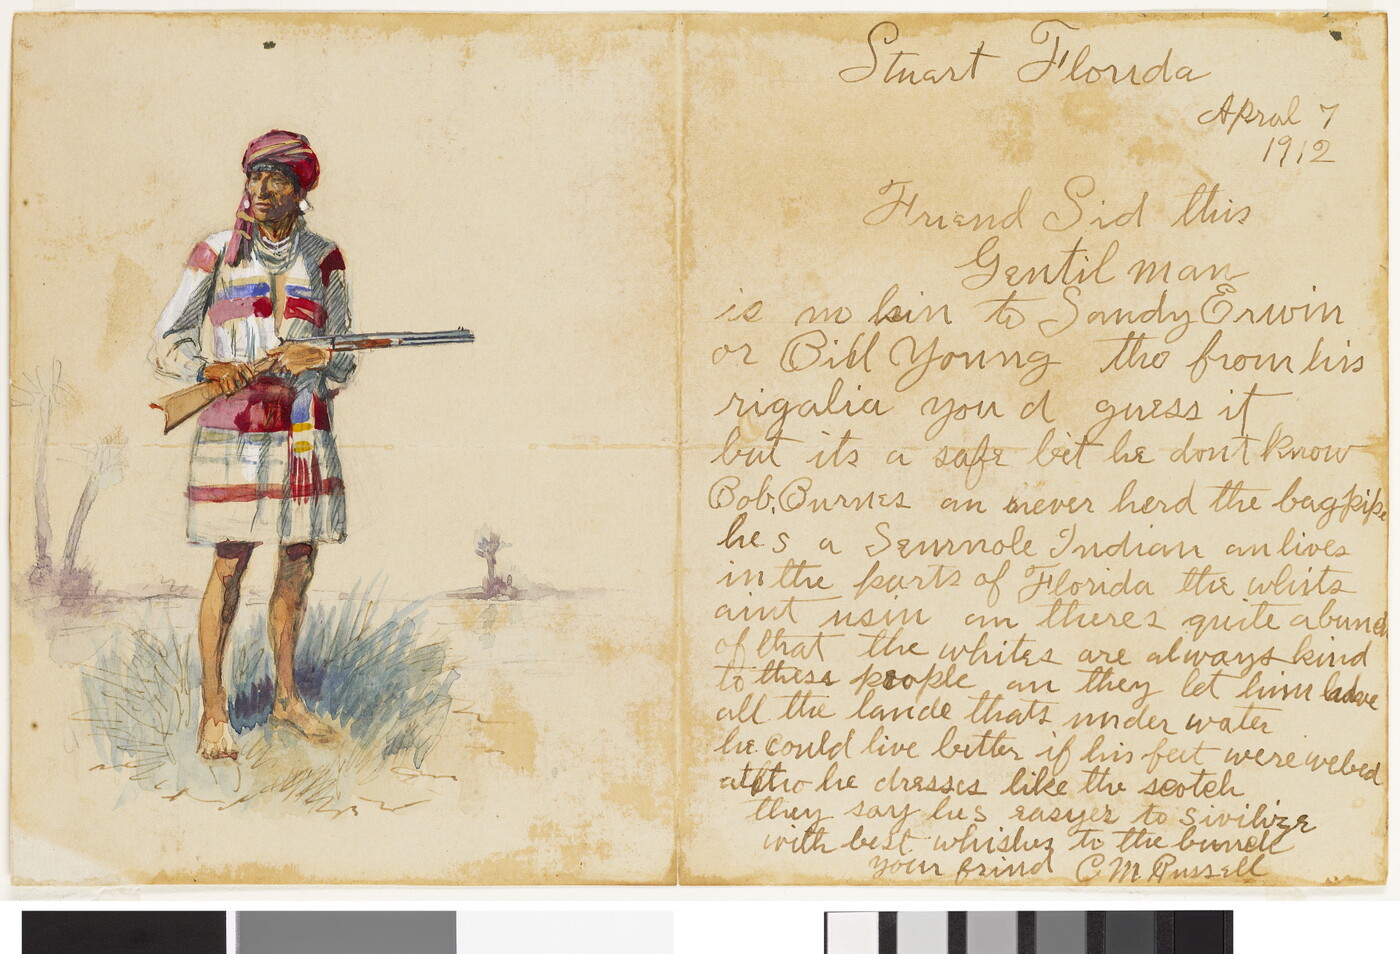 Stuart Florida
Apral 7
1912
Friend Sid this
Gentil man
is no kin to Sandy Erwin
or Bill Young tho from his
rigalia you d guess it
but its a safe bet he dont know
Bob. Burnes an never herd the bagpipe
he s a Semnole Indian an lives
in the parts of Florida the whits
aint usin an theres quite a bunch
of that the whites are always kind
to these people an they let him have
all the lande thats under water
he could live better if his feet were webed
altho he dresses like the scotch
they say hes easyer to sivilize
with best whishes to the bunch
your frind C M Russell